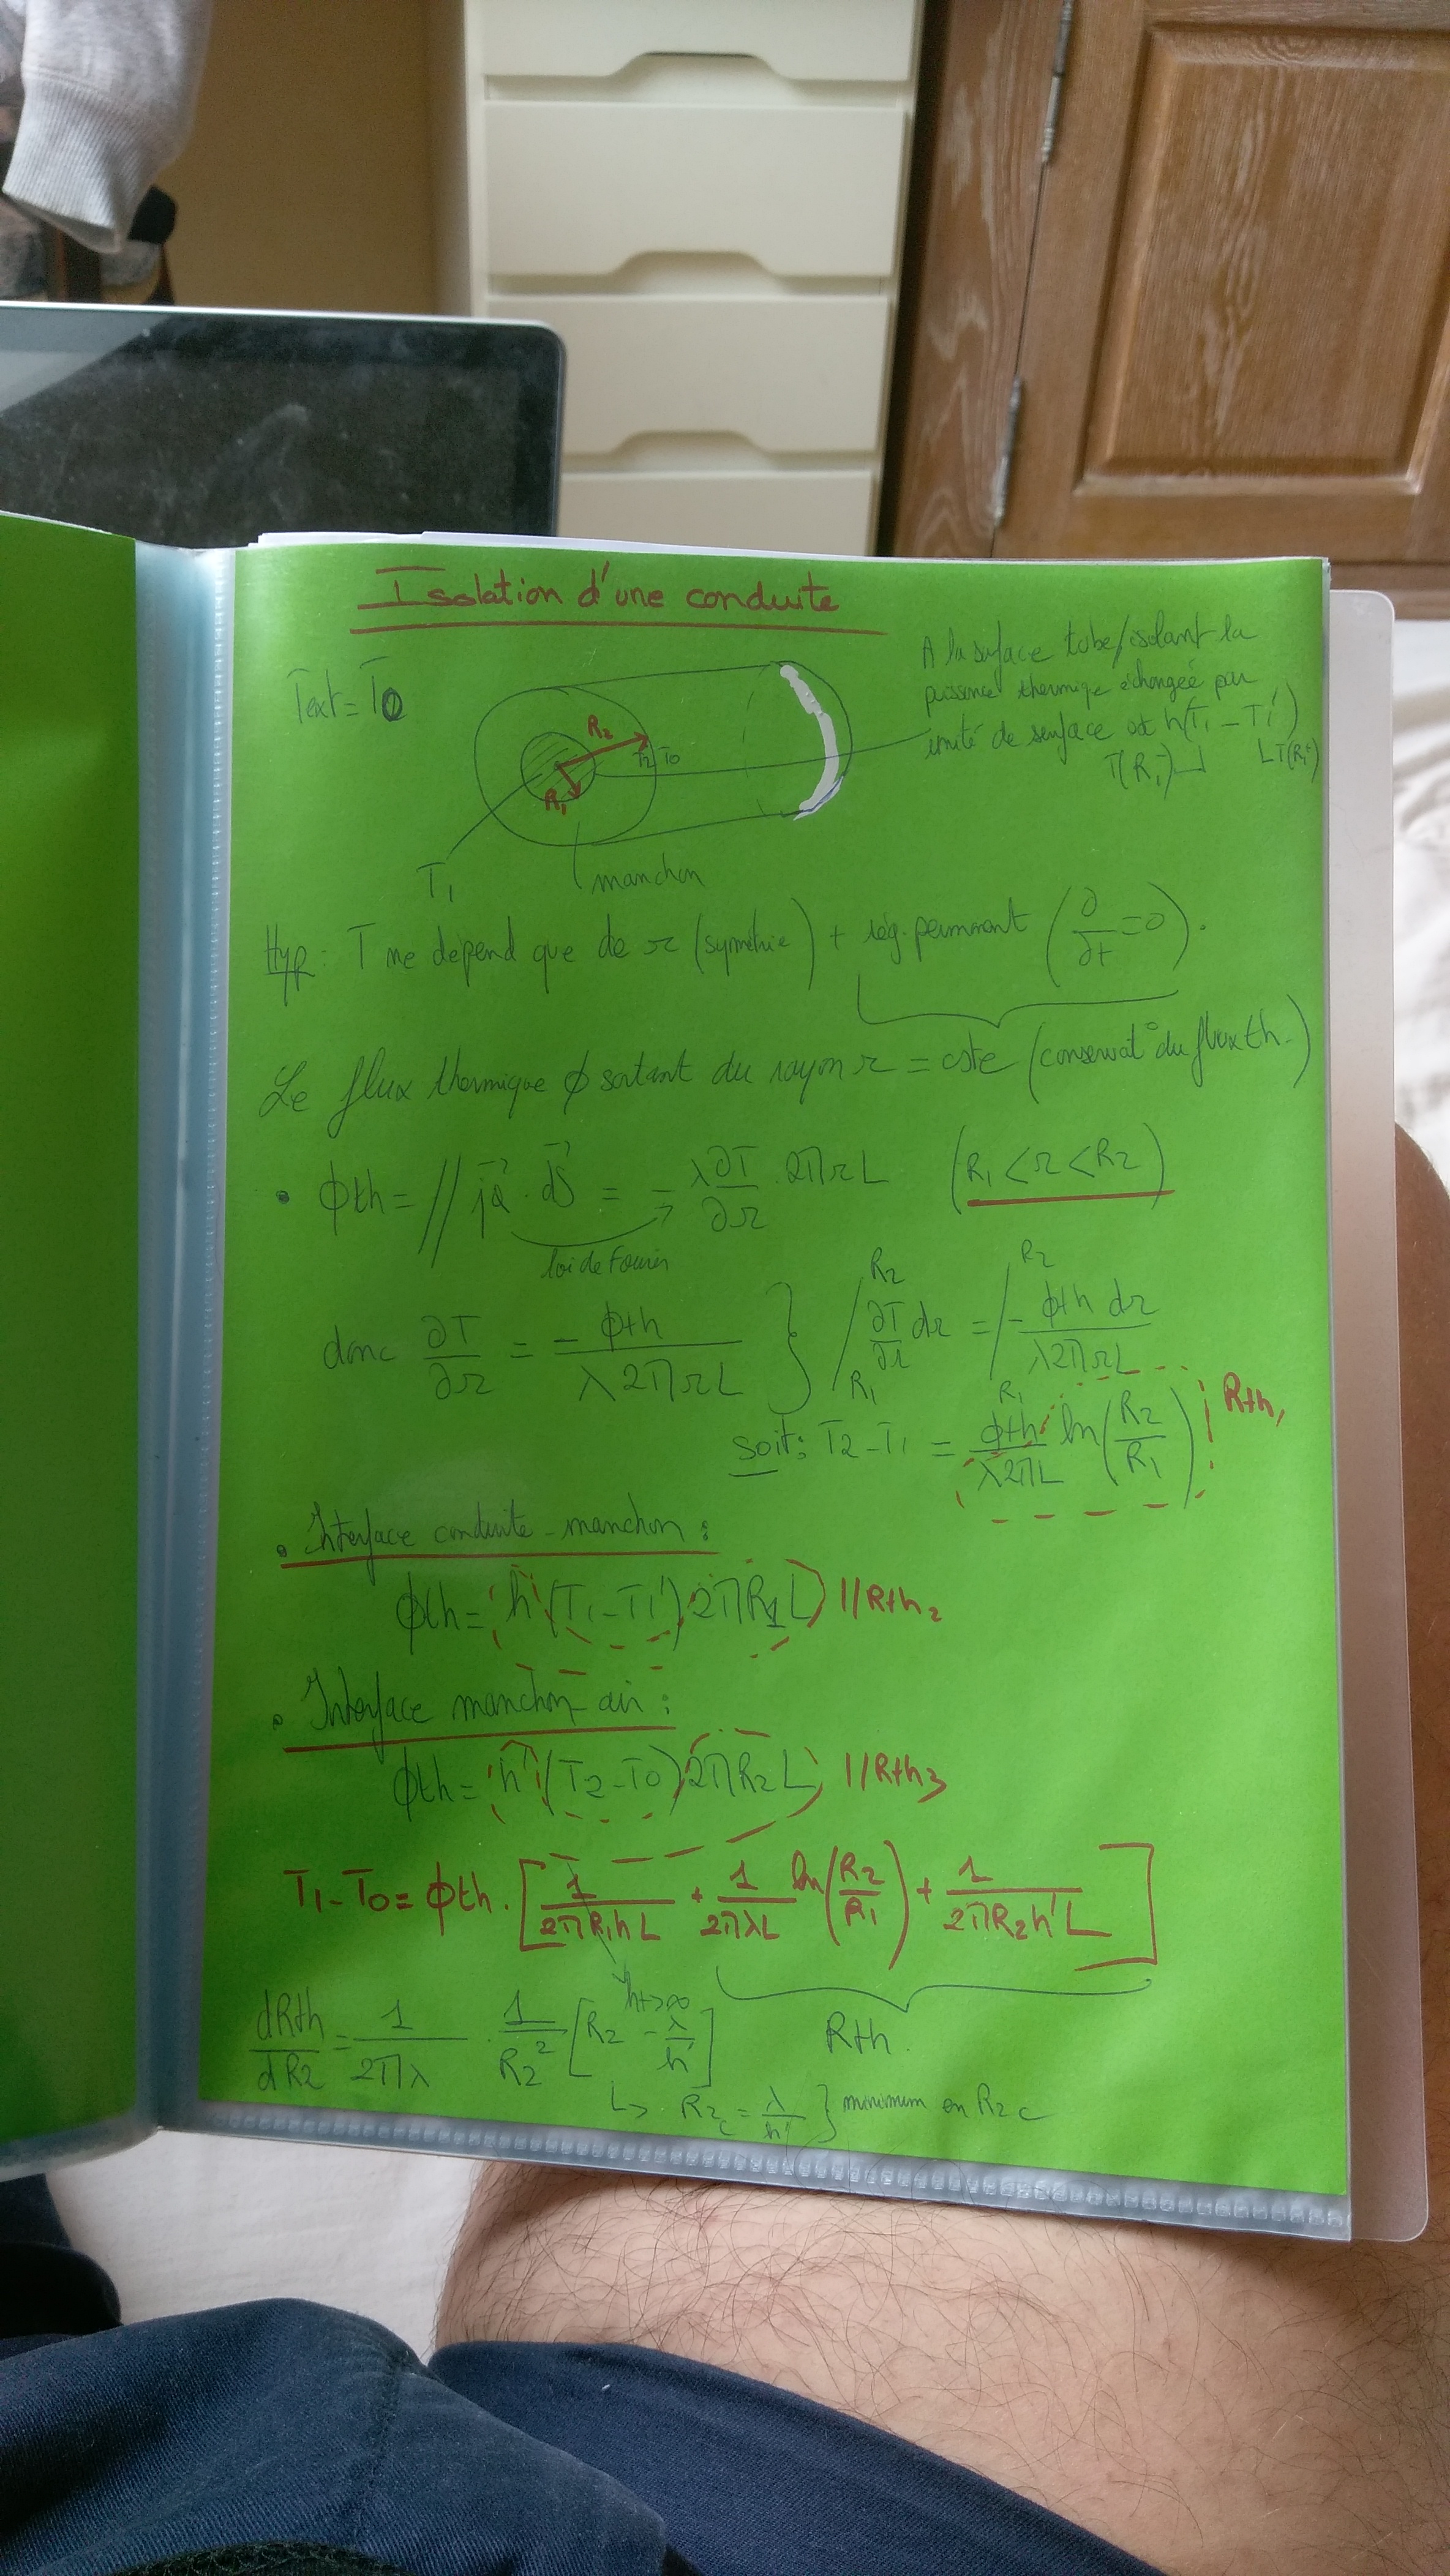 Isolation d'une conduite
Text = T0
A la surface tube/isolant la
puissance thermique échangée par
unité de surface est h(T1 - T1')
T(R1-) T(R1+)
R2
T2 T0
R1
T1
manchon
Hyp : T ne dépend que de r (symétrie) + rég. permanent (∂/∂t = 0).
Le flux thermique ϕ sortant du rayon r = cste (conservat° du flux th.)
• ϕth = ∫∫ jQ . dS = - λ ∂T/∂r . 2πrL (R1 < r < R2)
loi de Fourier
donc ∂T/∂r = - ϕth / λ2πrL } ∫R1^R2 ∂T/∂r dr = ∫R1^R2 - ϕth dr / λ2πrL
soit : T2 - T1 = ϕth / λ2πL ln(R2/R1) Rth1
• Interface conduite - manchon :
ϕth = h (T1 - T1') 2πR1 L 1/Rth2
• Interface manchon - air :
ϕth = h' (T2 - T0) 2πR2 L 1/Rth3
T1 - T0 = ϕth . [1/2πR1hL + 1/2πλL ln(R2/R1) + 1/2πR2h'L]
h→∞
Rth.
dRth/dR2 = 1/2πλ . 1/R2² [R2 - λ/h']
↳ R2c = λ/h' } minimum en R2c